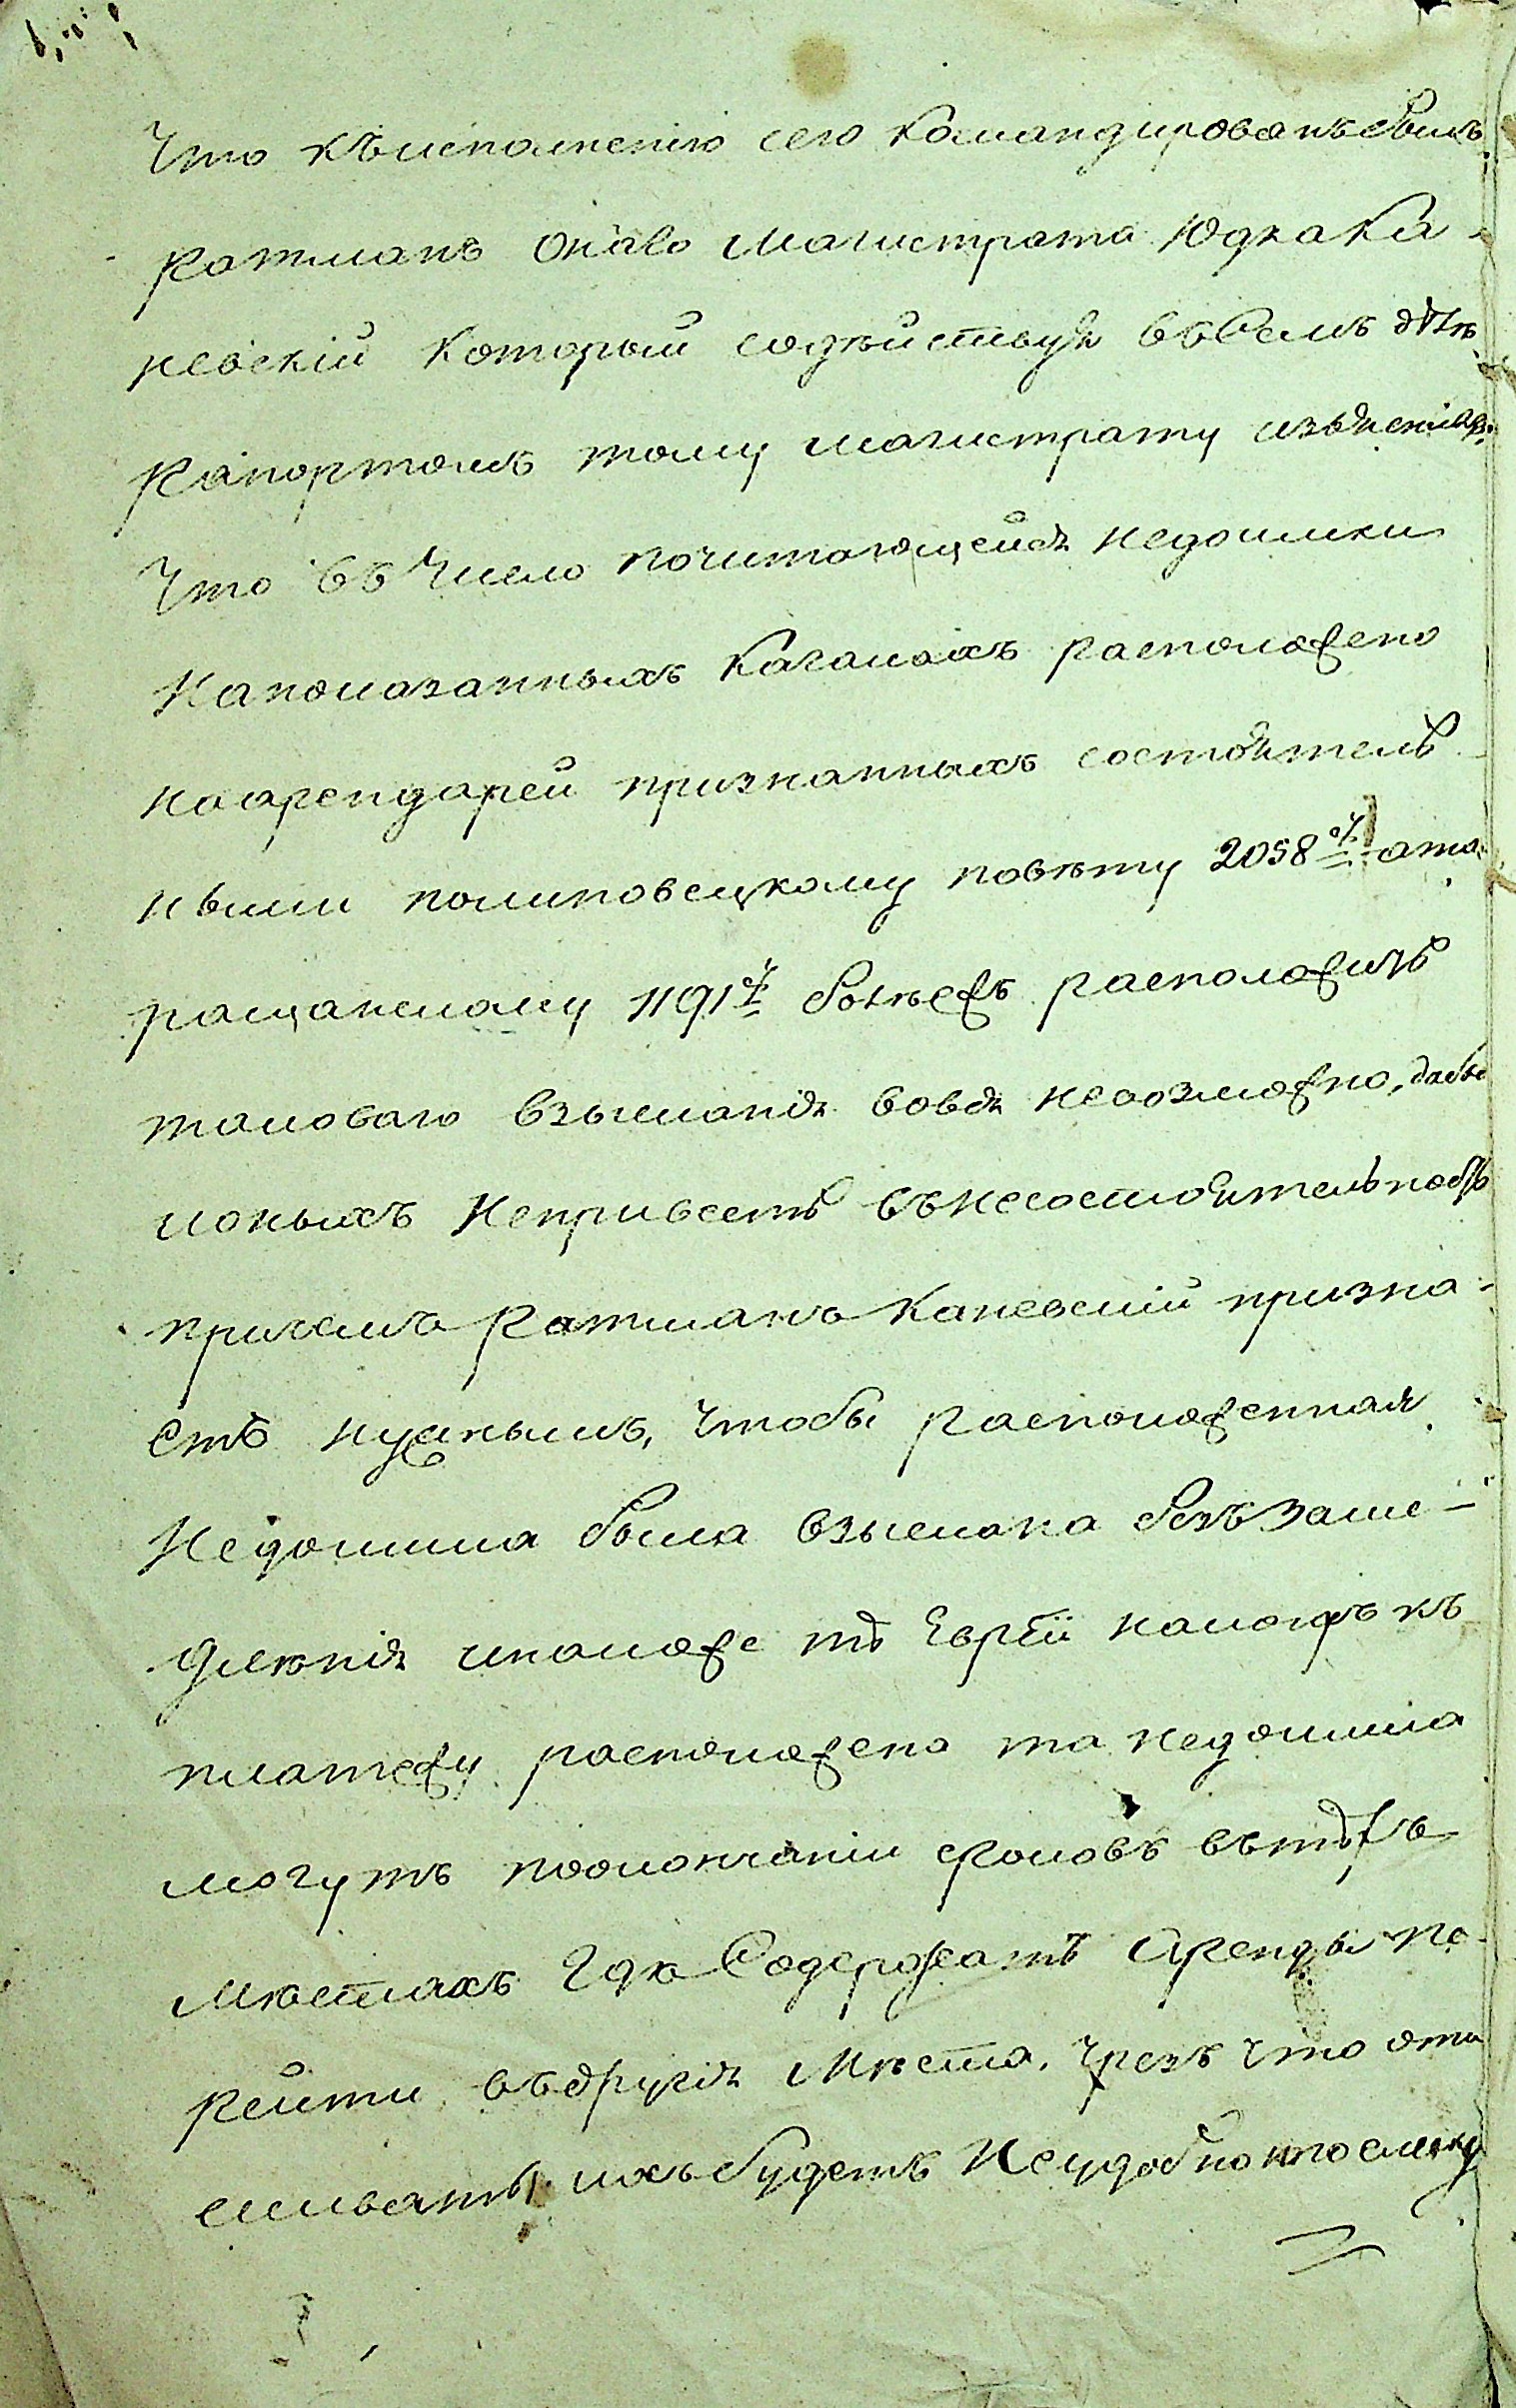 что къисполненію сего командированъ былъ
ратманъ онаго магистрата Юдка Ка-
невскій который содѣйствуя въ семъ дѣлѣ
рапортомъ тому магистрату изъяснилъ
что въ число почитающейся недоимки
напоказанныхъ кагалахъ расположено
наарендарей признанныхъ состоятель-
ными полиповецкому повѣту 2058 ч. ата-
ращанскому 1191 ч. болѣежъ расположить
таковаго взысканія вовся невозможно, дабы
ионыхъ непривесть въ несостоятельность
причемъ ратманъ Каневскій призна-
етъ нужнымъ, чтобы расположенная
недоимка была взыскана безъ заме-
дленія инакоже тѣ Евреи накоихъ къ
платежу расположена та недоимка
могутъ поокончаніи сроковъ вътѣхъ
мѣстахъ гдѣ содержатъ аренды пе-
рейти въ другія мѣста, чрезъ что оты
скивать ихъ будетъ неудобно ито слѣду